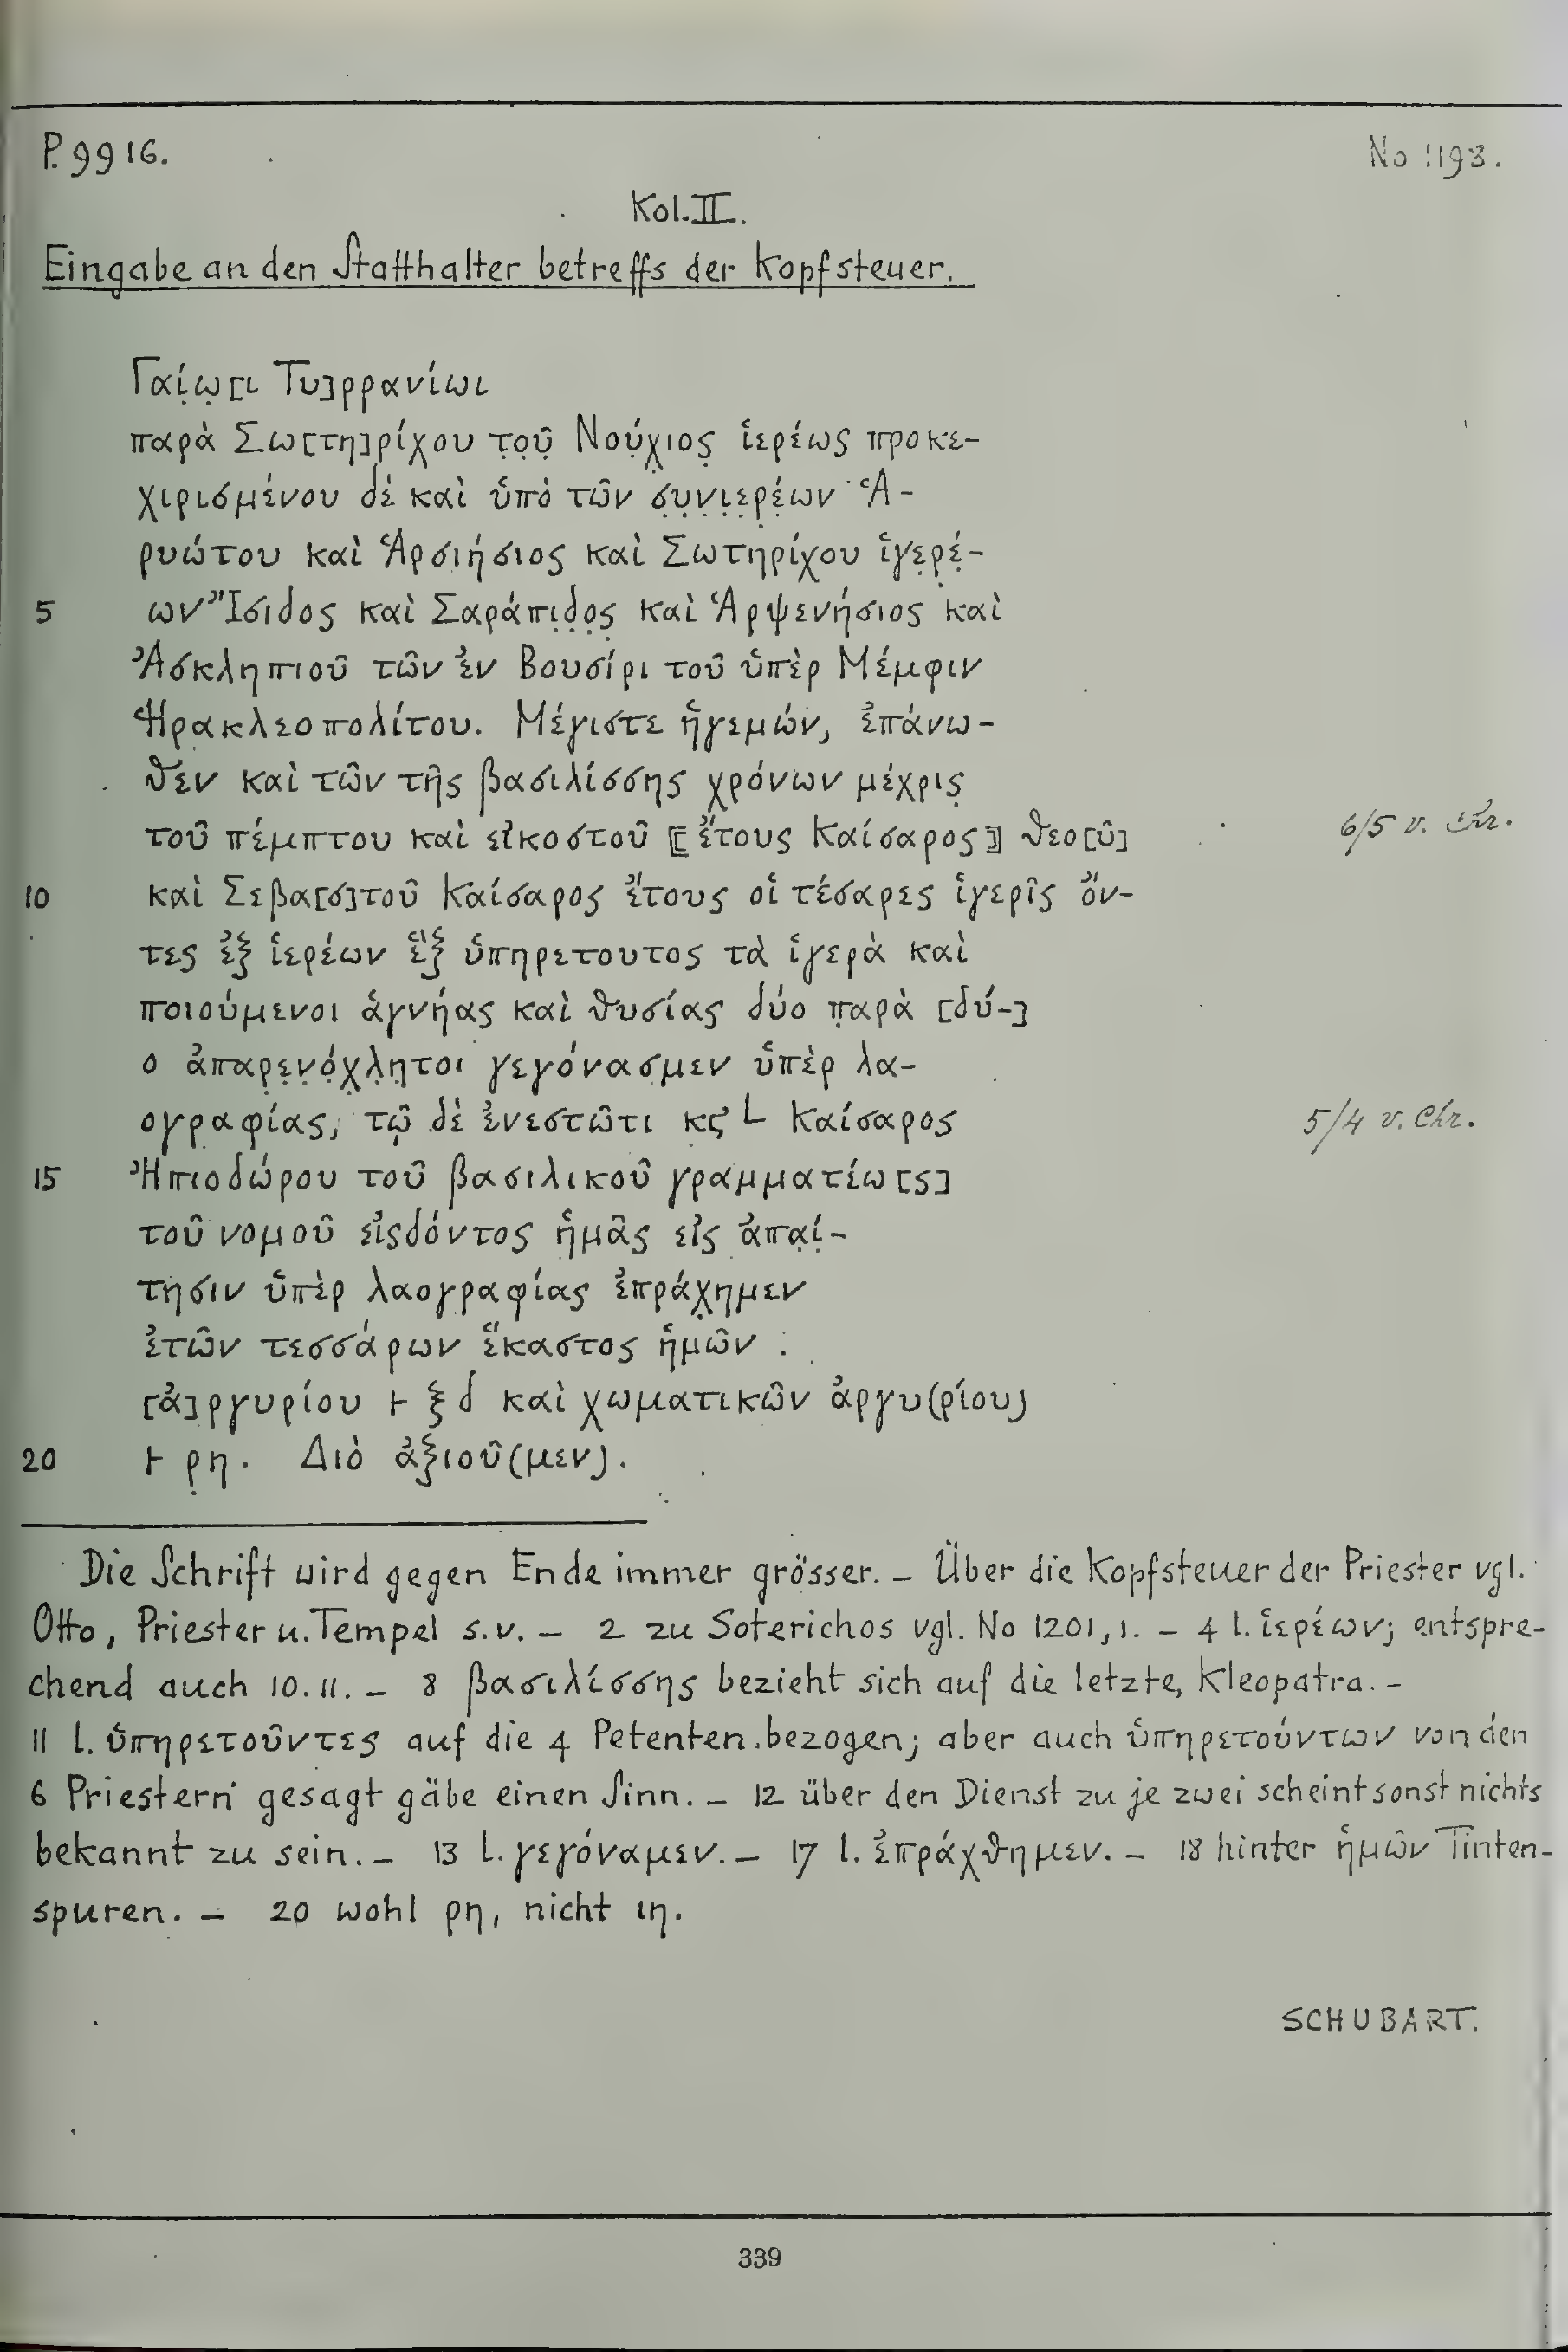 P. 9916. No 1198.
Kol. II.
Eingabe an den Statthalter betreffs der Kopfsteuer.
Γαί̣ω̣[ι Τυ]ρρανίωι
παρὰ Σω[τη]ρίχου τ̣ο̣ῦ̣ Νούχ̣ιος̣ ἱερέως προκε-
χιρισμένου δὲ καὶ ὑπὸ τῶν σ̣υ̣ν̣ι̣ε̣ρ̣έ̣ων Ἁ-
ρυώτου καὶ Ἁρσιήσιος καὶ Σωτηρίχου ἱγε̣ρέ̣-
5 ων Ἴσιδος καὶ Σαράπι̣δ̣ο̣ς̣ καὶ Ἁρψενήσιος καὶ
Ἀσκληπιοῦ τῶν ἐν Βουσίρι τοῦ ὑπὲρ Μέμφιν
Ἡρακλεοπολίτου. Μέγιστε ἡγεμών, ἐπάνω-
θεν καὶ τῶν τῆς βασιλίσσης χρόνων μέχρις̣
τοῦ πέμπτου καὶ εἰκοστοῦ ⟦ἔτους Καίσαρος⟧ θεο[ῦ] 6/5 v. Chr.
10 καὶ Σεβα[σ]τοῦ Καίσαρος ἔτους οἱ τέσαρες ἱγερῖς ὄν-
τες ἐξ ἱερέων ἓξ ὑπηρετουτος τὰ ἱγερὰ καὶ
ποιούμενοι ἁγνήας καὶ θυσίας δύο π̣αρὰ [δύ-]
ο ἀπαρε̣ν̣ό̣χ̣λ̣η̣τοι γεγόνασμεν ὑπὲρ λα-
ογραφίας, τῷ δὲ ἐνεστῶτι κϛ L Καίσαρος 5/4 v. Chr.
15 Ἠπιοδώρου τοῦ βασιλικοῦ γραμματέω[ς]
τοῦ νομοῦ εἰςδόντος ἡμᾶς εἰς ἀπα̣ί̣-
τησιν ὑπὲρ λαογραφίας ἐπράχ̣ημεν
ἐτῶν τεσσάρων ἕκαστος ἡμῶν :
[ἀ]ργυρίου ⊢ ξδ καὶ χωματικῶν ἀργυ(ρίου)
20 ⊢ ρ̣η. Διὸ ἀξιοῦ(μεν).
Die Schrift wird gegen Ende immer grösser. – Über die Kopfsteuer der Priester vgl.
Otto, Priester u. Tempel s.v. – 2 zu Soterichos vgl. No 1201,1. – 4 l. ἱερέων; entspre-
chend auch 10. 11. – 8 βασιλίσσης bezieht sich auf die letzte, Kleopatra. –
11 l. ὑπηρετοῦντες auf die 4 Petenten bezogen; aber auch ὑπηρετούντων von den
6 Priestern gesagt gäbe einen Sinn. – 12 über den Dienst zu je zwei scheint sonst nichts
bekannt zu sein. – 13 l. γεγόναμεν. – 17 l. ἐπράχθημεν. – 18 hinter ἡμῶν Tinten-
spuren. – 20 wohl ρη, nicht ιη.
SCHUBART.
339